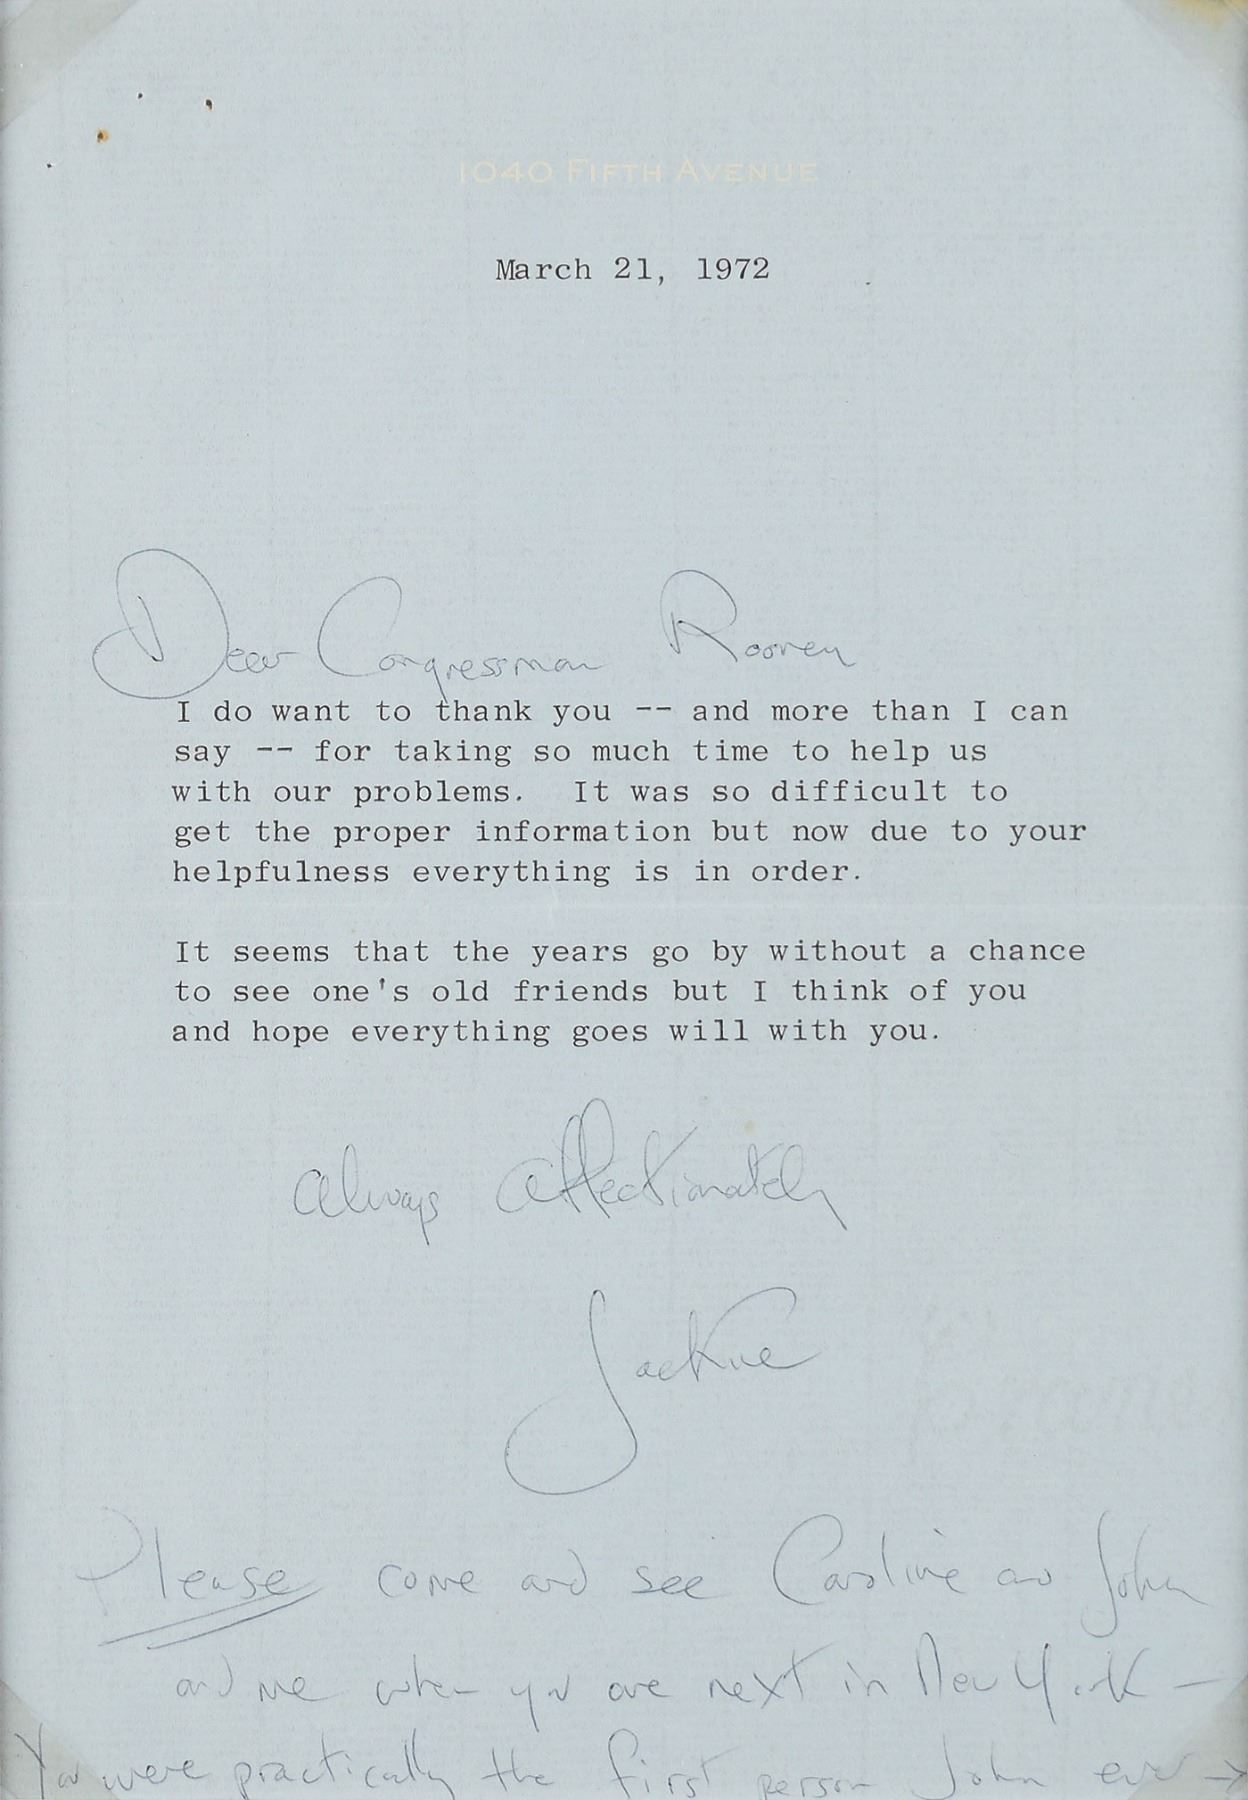 1040 FIFTH AVENUE
March 21, 1972
Dear Congressman Rooney
I do want to thank you -- and more than I can
say -- for taking so much time to help us
with our problems. It was so difficult to
get the proper information but now due to your
helpfulness everything is in order.
It seems that the years go by without a chance
to see one's old friends but I think of you
and hope everything goes will with you.
Always affectionately
Jackie
Please come and see Caroline and John
and me when you are next in New York —
You were practically the first person John ever →